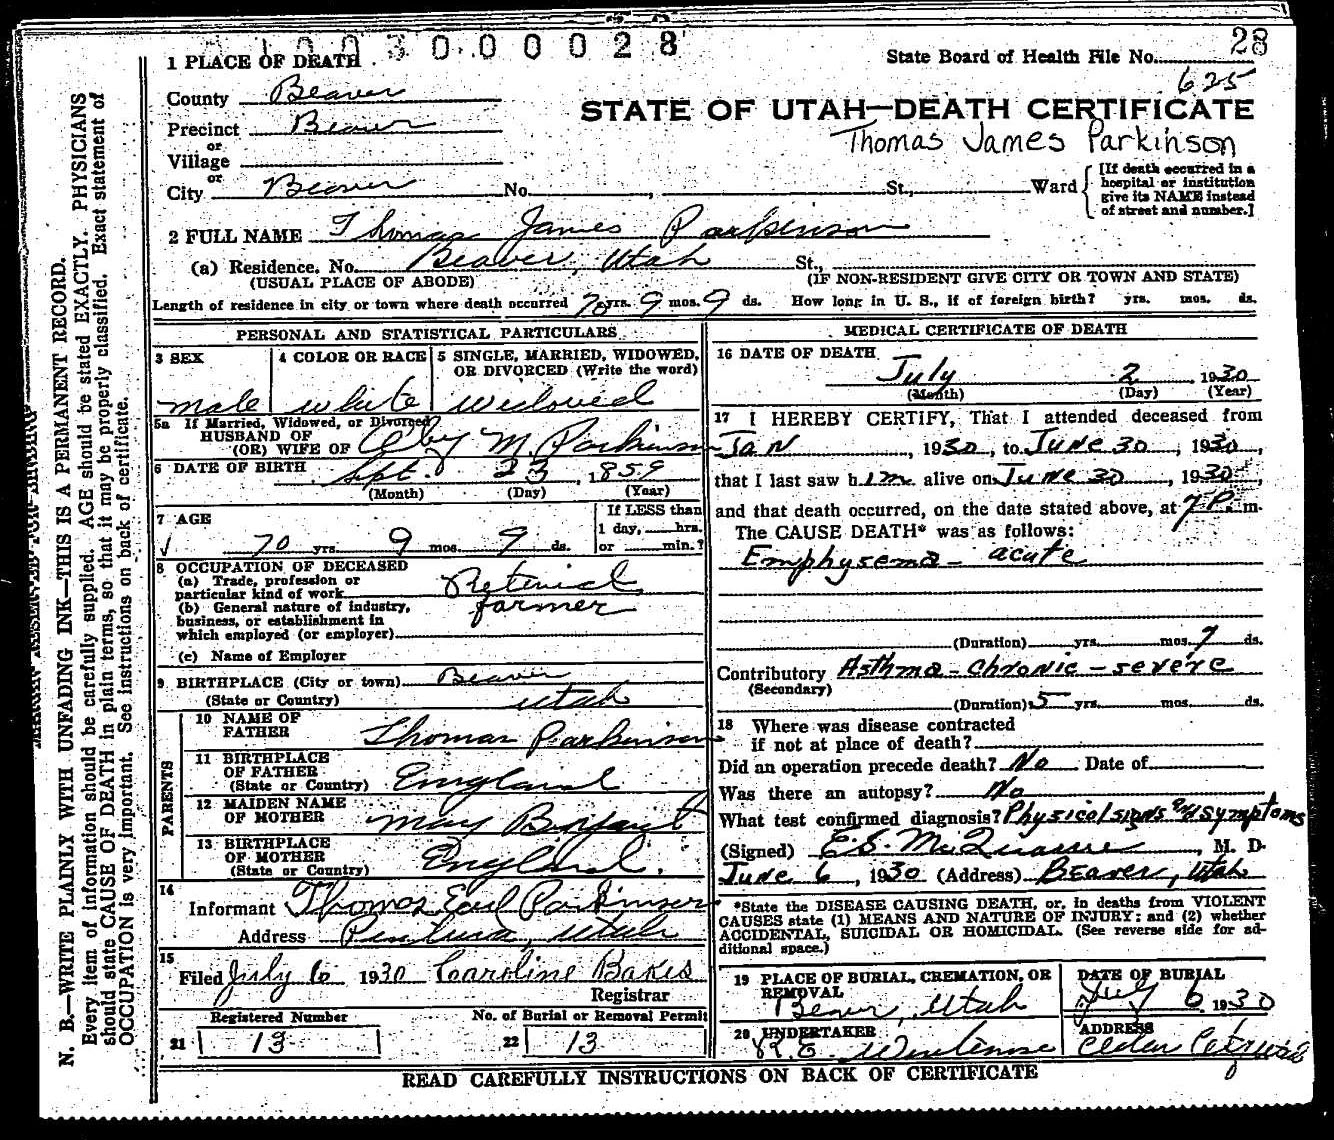 A 1 0 0 3 0 0 0 0 2 8
28
1 PLACE OF DEATH
State Board of Health File No.
625
County Beaver
STATE OF UTAH—DEATH CERTIFICATE
Precinct Beaver
Thomas James Parkinson
or
Village
or
City Beaver No. , St., Ward
[If death occurred in a
hospital or institution
give its NAME instead
of street and number.]
2 FULL NAME Thomas James Parkinson
(a) Residence. No. Beaver, Utah St.,
(USUAL PLACE OF ABODE) (IF NON-RESIDENT GIVE CITY OR TOWN AND STATE)
Length of residence in city or town where death occurred 70 yrs. 9 mos. 9 ds. How long in U. S., if of foreign birth? yrs. mos. ds.
PERSONAL AND STATISTICAL PARTICULARS
3 SEX
male
4 COLOR OR RACE
white
5 SINGLE, MARRIED, WIDOWED,
OR DIVORCED (Write the word)
widowed
5a If Married, Widowed, or Divorced
HUSBAND OF
(OR) WIFE OF M. Parkinson
6 DATE OF BIRTH Sept. 23, 1859
(Month) (Day) (Year)
7 AGE
√ 70 yrs. 9 mos. 9 ds.
If LESS than
1 day, hrs.
or min.?
8 OCCUPATION OF DECEASED
(a) Trade, profession or
particular kind of work Retired
(b) General nature of industry, farmer
business, or establishment in
which employed (or employer)
(c) Name of Employer
9 BIRTHPLACE (City or town) Beaver
(State or Country) Utah
PARENTS
10 NAME OF
FATHER Thomas Parkinson
11 BIRTHPLACE
OF FATHER
(State or Country) England
12 MAIDEN NAME
OF MOTHER Mary Bryant
13 BIRTHPLACE
OF MOTHER
(State or Country) England.
14
Informant Thomas Earl Parkinson
Address Utah
15
Filed July 6 1930 Caroline Bakes
Registrar
Registered Number
21 13
No. of Burial or Removal Permit
22 13
MEDICAL CERTIFICATE OF DEATH
16 DATE OF DEATH
July 2, 1930
(Month) (Day) (Year)
17 I HEREBY CERTIFY, That I attended deceased from
Jan , 1930, to June 30, 1930,
that I last saw him alive on June 30, 1930,
and that death occurred, on the date stated above, at 7 P. m.
The CAUSE DEATH* was as follows:
Emphysema - acute
(Duration) yrs. mos. 7 ds.
Contributory Asthma - chronic - severe
(Secondary)
(Duration) 5 yrs. mos. ds.
18 Where was disease contracted
if not at place of death?
Did an operation precede death? No Date of
Was there an autopsy? No
What test confirmed diagnosis? Physical signs and symptoms
(Signed) , M. D.
June 6, 1930 (Address) Beaver, Utah
*State the DISEASE CAUSING DEATH, or, in deaths from VIOLENT
CAUSES state (1) MEANS AND NATURE OF INJURY: and (2) whether
ACCIDENTAL, SUICIDAL OR HOMICIDAL. (See reverse side for ad-
ditional space.)
19 PLACE OF BURIAL, CREMATION, OR
REMOVAL
Beaver, Utah
DATE OF BURIAL
July 6 1930
20 UNDERTAKER
ADDRESS
Cedar City Utah
READ CAREFULLY INSTRUCTIONS ON BACK OF CERTIFICATE
MARGIN RESERVED FOR BINDING
N. B.—WRITE PLAINLY WITH UNFADING INK—THIS IS A PERMANENT RECORD.
Every item of information should be carefully supplied. AGE should be stated EXACTLY. PHYSICIANS
should state CAUSE OF DEATH in plain terms, so that it may be properly classified. Exact statement of
OCCUPATION is very important. See instructions on back of certificate.